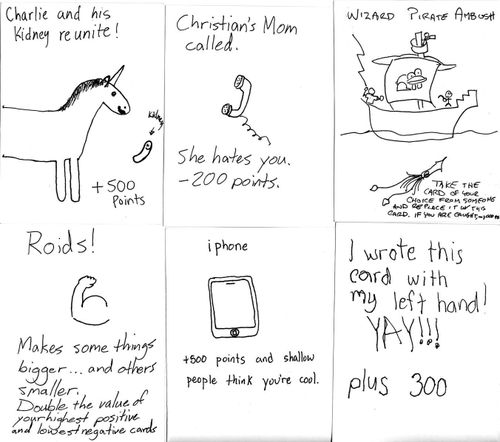 Charlie and his
Kidney reunite!
Kidney
+500
Points
Christian's Mom
called.
She hates you.
-200 points.
WIZARD PIRATE AMBUSH
TAKE THE
CARD OF YOUR
CHOICE FROM SOMEONE
AND REPLACE IT W/ THIS
CARD. IF YOU ARE CAUGHT,
Roids!
Makes some things
bigger... and others
smaller.
Double the value of
your highest positive
and lowest negative cards
iphone
+500 points and shallow
people think you're cool.
I wrote this
card with
my left hand!
YAY!!!
plus 300